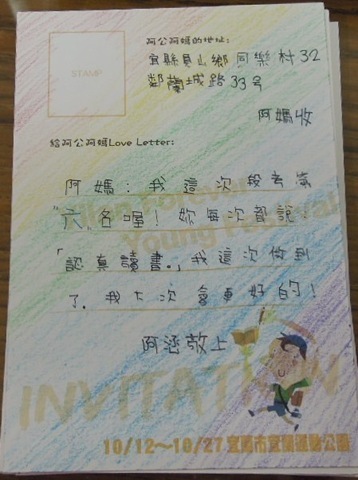 阿公阿媽的地址:
宜縣員山鄉同樂村32
鄰蘭城路33号
STAMP
阿媽收
給阿公阿媽Love Letter:
阿媽：我這次段考第
"六"名喔！妳每次都說！
「認真讀書.」我這次做到
了.我下次會更好的！
阿涵敬上
INVITATION
10/12～10/27 宜蘭市宜蘭運動公園